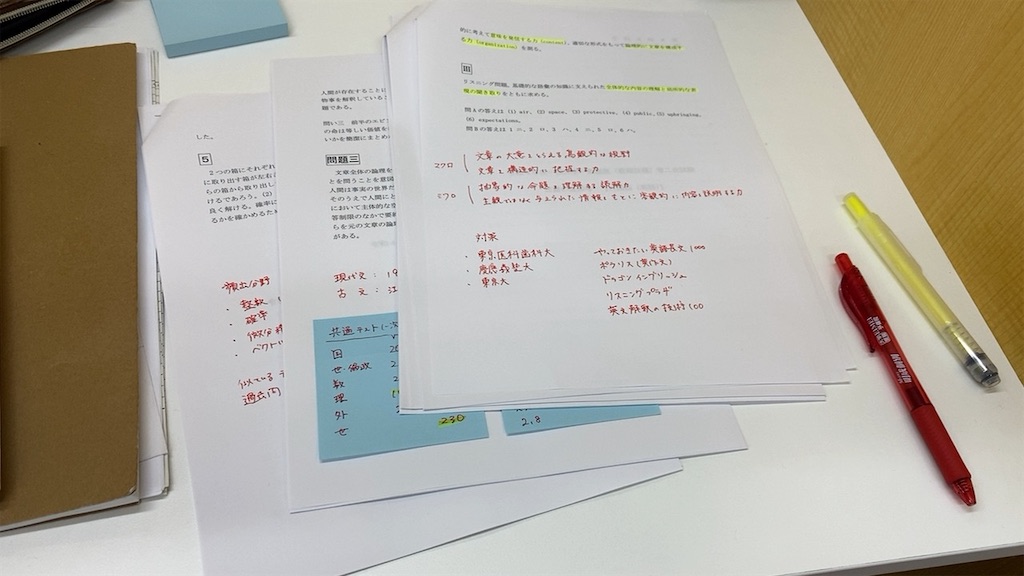 的に考えて意味を発信する力 (content)、適切な形式をもって論理的に文章を構成す
る力 (organization) を測る。
III
リスニング問題。基礎的な語彙の知識に支えられた全体的な内容の理解と局所的な情
報の聞き取りをともに求める。
問 A の答えは (1) air, (2) space, (3) protective, (4) public, (5) upbringing,
(6) expectations.
問 B の答えは 1 ニ, 2 ロ, 3 ハ, 4 ニ, 5 ロ, 6 ハ。
文章の大意をとらえる高級的な視野
文章を構造的に把握する力
抽象的な命題を理解する読解力
主観ではなく与えられた情報をもとに客観的に内容を説明する力
対策
・東京医科歯科大
・慶應義塾大
・東京大
やっておきたい英語長文 1000
ポラリス (英作文)
ドラゴンイングリッシュ
リスニングプラザ
英文解釈の技術 100
人間が存在することに
物事を解釈している
題である。
問い三 前半のエピ
の命は等しい価値を
いかを簡潔にまとめ
問題三
文章全体の論理を
とを問うことを意図
人間は事実の世界だ
そのうえで人間に
において主体的な
答制限のなかで要
らを元の文章の論
がある。
現代文: 19
古文: 江
共通テスト(一次
国 20
世・倫政 2
数 2
理
外
世 230
2.8
した。
5
2つの箱にそれぞれ
に取り出す箱が左右
らの箱から取り出し
けるであろう。(2)
良く解ける。確率に
るかを確かめるため
頻出分野
・整数
・確率
・微分積
・ベクトル
似ている
過去問